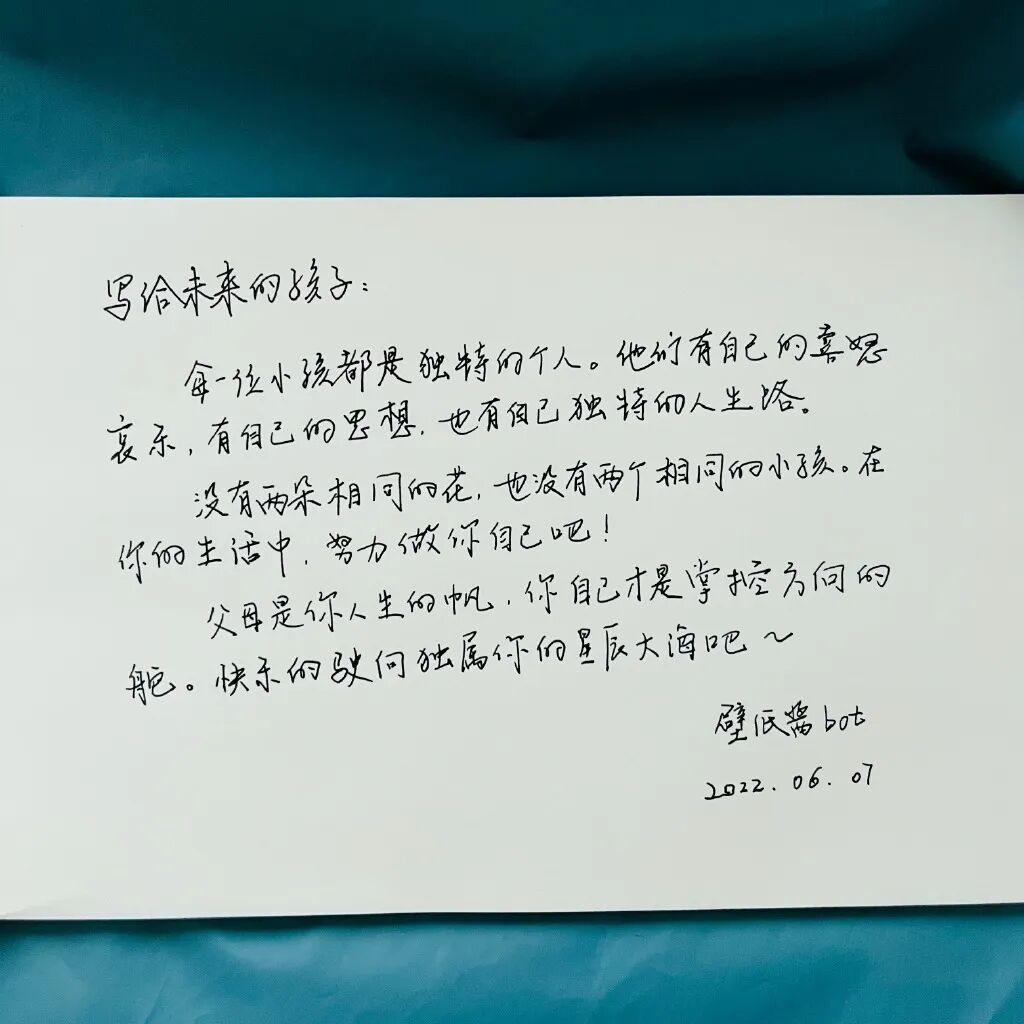 写给未来的孩子：
每一位小孩都是独特的个人。他们有自己的喜怒
哀乐，有自己的思想，也有自己独特的人生路。
没有两朵相同的花，也没有两个相同的小孩。在
你的生活中，努力做你自己吧！
父母是你人生的帆，你自己才是掌控方向的
舵。快乐的驶向独属你的星辰大海吧～
壁纸酱bot
2022.06.07